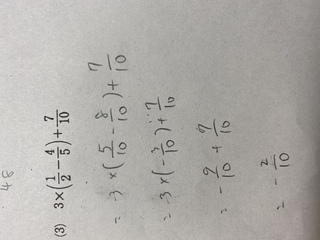 48
(3) 3×(1/2−4/5)+7/10
= 3×(5/10−8/10)+7/10
= 3×(−3/10)+7/10
= −9/10+7/10
= −2/10